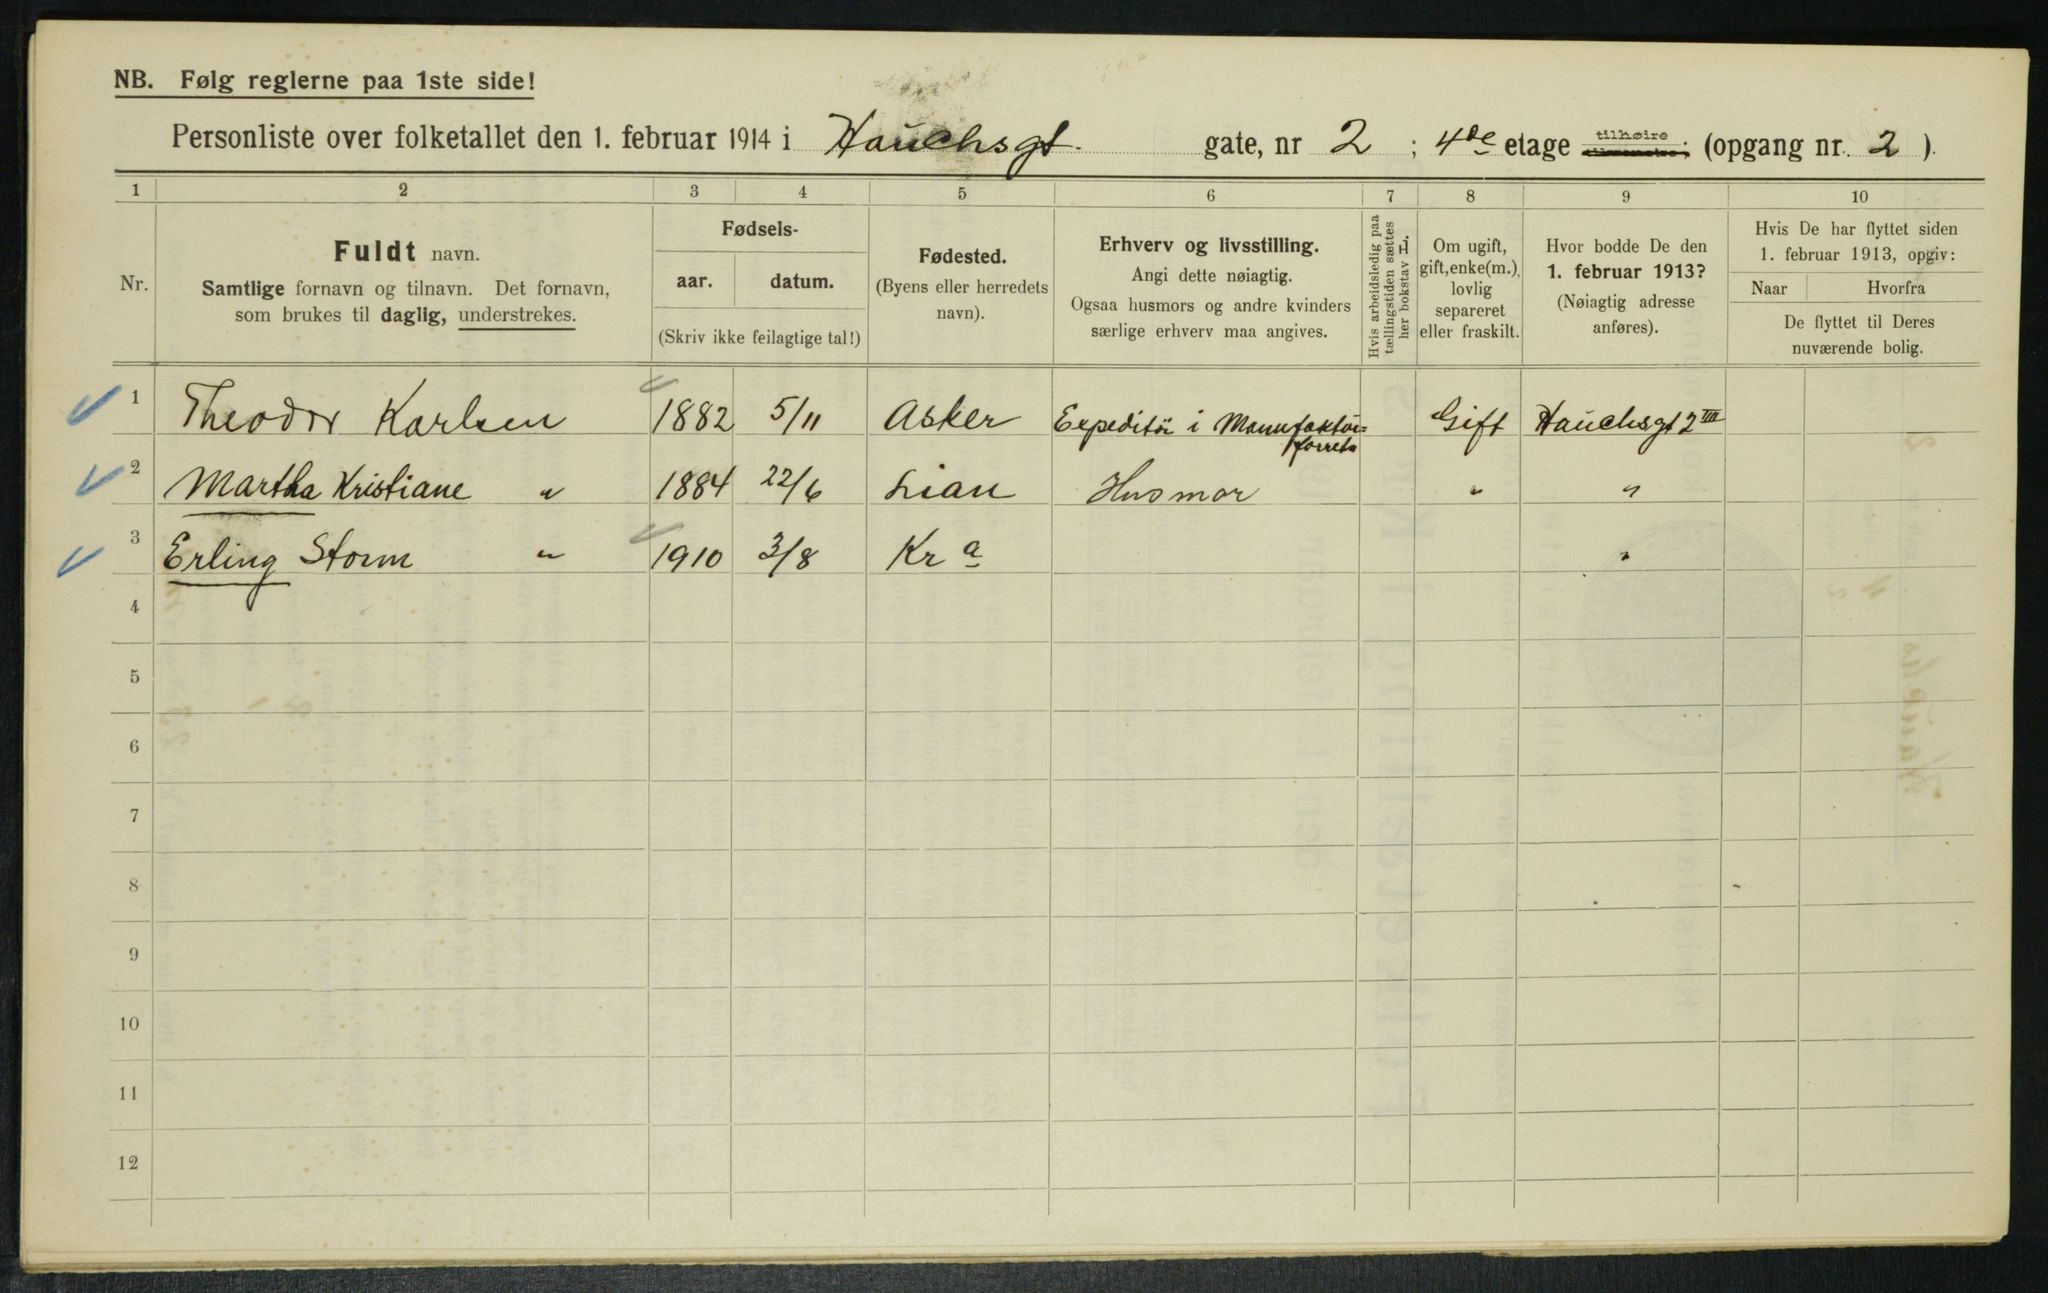 NB. Følg reglerne paa 1ste side!
Personliste over folketallet den 1. februar 1914 i Hauchsgt. gate, nr 2 ; 4de etage tilhøire (opgang nr. 2 ).
1 2 3 4 5 6 7 8 9 10
Nr.
Fuldt navn.
Samtlige fornavn og tilnavn. Det fornavn,
som brukes til daglig, understrekes.
Fødsels-
aar. datum.
(Skriv ikke feilagtige tal!)
Fødested.
(Byens eller herredets
navn).
Erhverv og livsstilling.
Angi dette nøiagtig.
Ogsaa husmors og andre kvinders
særlige erhverv maa angives.
Hvis arbeidsledig paa
tællingstiden sættes
her bokstav L.
Om ugift,
gift, enke(m.),
lovlig
separeret
eller fraskilt.
Hvor bodde De den
1. februar 1913?
(Nøiagtig adresse
anføres).
Hvis De har flyttet siden
1. februar 1913, opgiv:
Naar Hvorfra
De flyttet til Deres
nuværende bolig.
1 Theodor Karlsen 1882 5/11 Asker Expeditör i Manufaktur= Gift Hauchsgt 2 IIII
forretn
2 Martha Kristiane " 1884 22/6 Lian Husmor " "
3 Erling Storm " 1910 3/8 Kra "
4
5
6
7
8
9
10
11
12